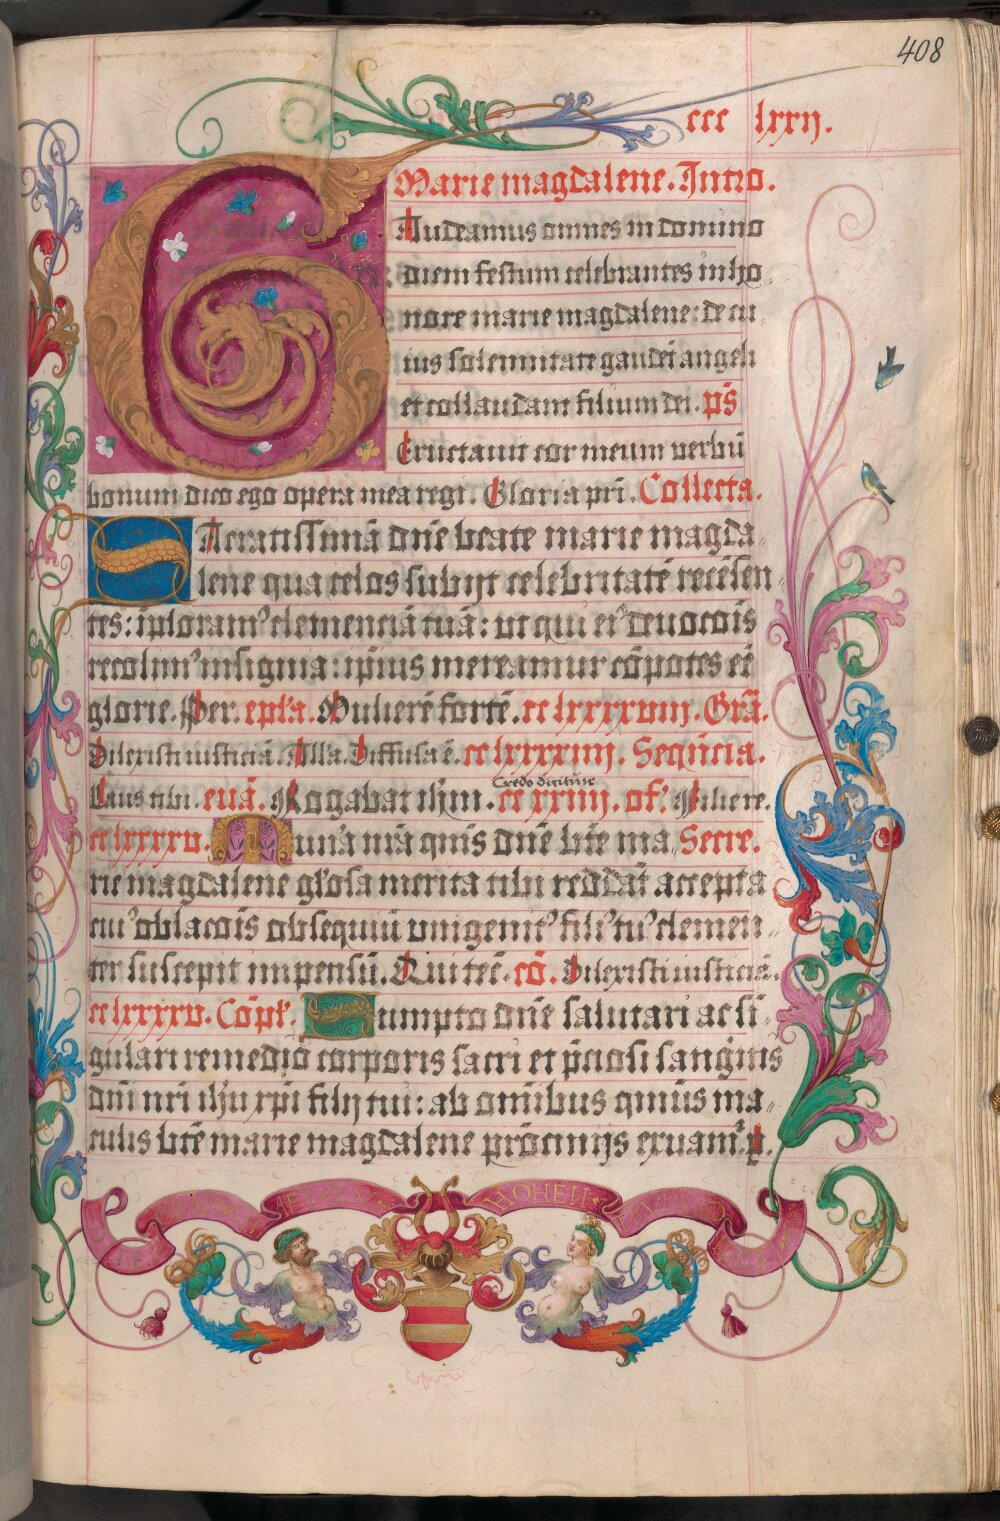 408
ccc lxxij.
Marie magdalene. Intro.
Audeamus omnes in domino
diem festum celebrantes in ho
nore marie magdalene: de cu
ius solennitate gaudēt angeli
et collaudant filium dei. pꝰs
Eructauit cor meum verbū
bonum dico ego opera mea regi. Gloria pri. Collecta.
Acratissimā dn̄e beate marie magda
lene qua celos subijt celebritatē recēsen
tes: īploramꝰ clemenciā tuā: ut qui eiꝰ deuocōis
recolimꝰ insignia: ip̄ius mereamur cōpotes eē
glorie. Per. epl'a. Mulierē fortē. cc lxxxxviij. Gra.
Dilexisti iusticiā. All'a. Diffusa ē. cc lxxxxiiij. Sequēcia.
Credo dicitur
Laus tibi. euā. Rogabat ihm. cc xxiiij. of. Filie re.
cc lxxxxv. Munꝰa nr̄a qm̄s dn̄e bt̄e ma Secre.
rie magdalene gl'osa merita tibi reddāt accepta
cuiꝰ oblacōis obsequiū unigenitꝰ filiꝰ tuꝰ clemen
ter suscepit impensū. Qui tecū. cō. Dilexisti iusticiā.
cc lxxxxv. Cōpl'. Sumpto dn̄e salutari ac si
gulari remedio corporis sacri et p̄ciosi sangīnis
dn̄i nr̄i ih'u xp̄i filij tui: ab om̄ibus qm̄us ma
culis bt̄e marie magdalene prōcinijs exuamꝰ. p.
HOHEN